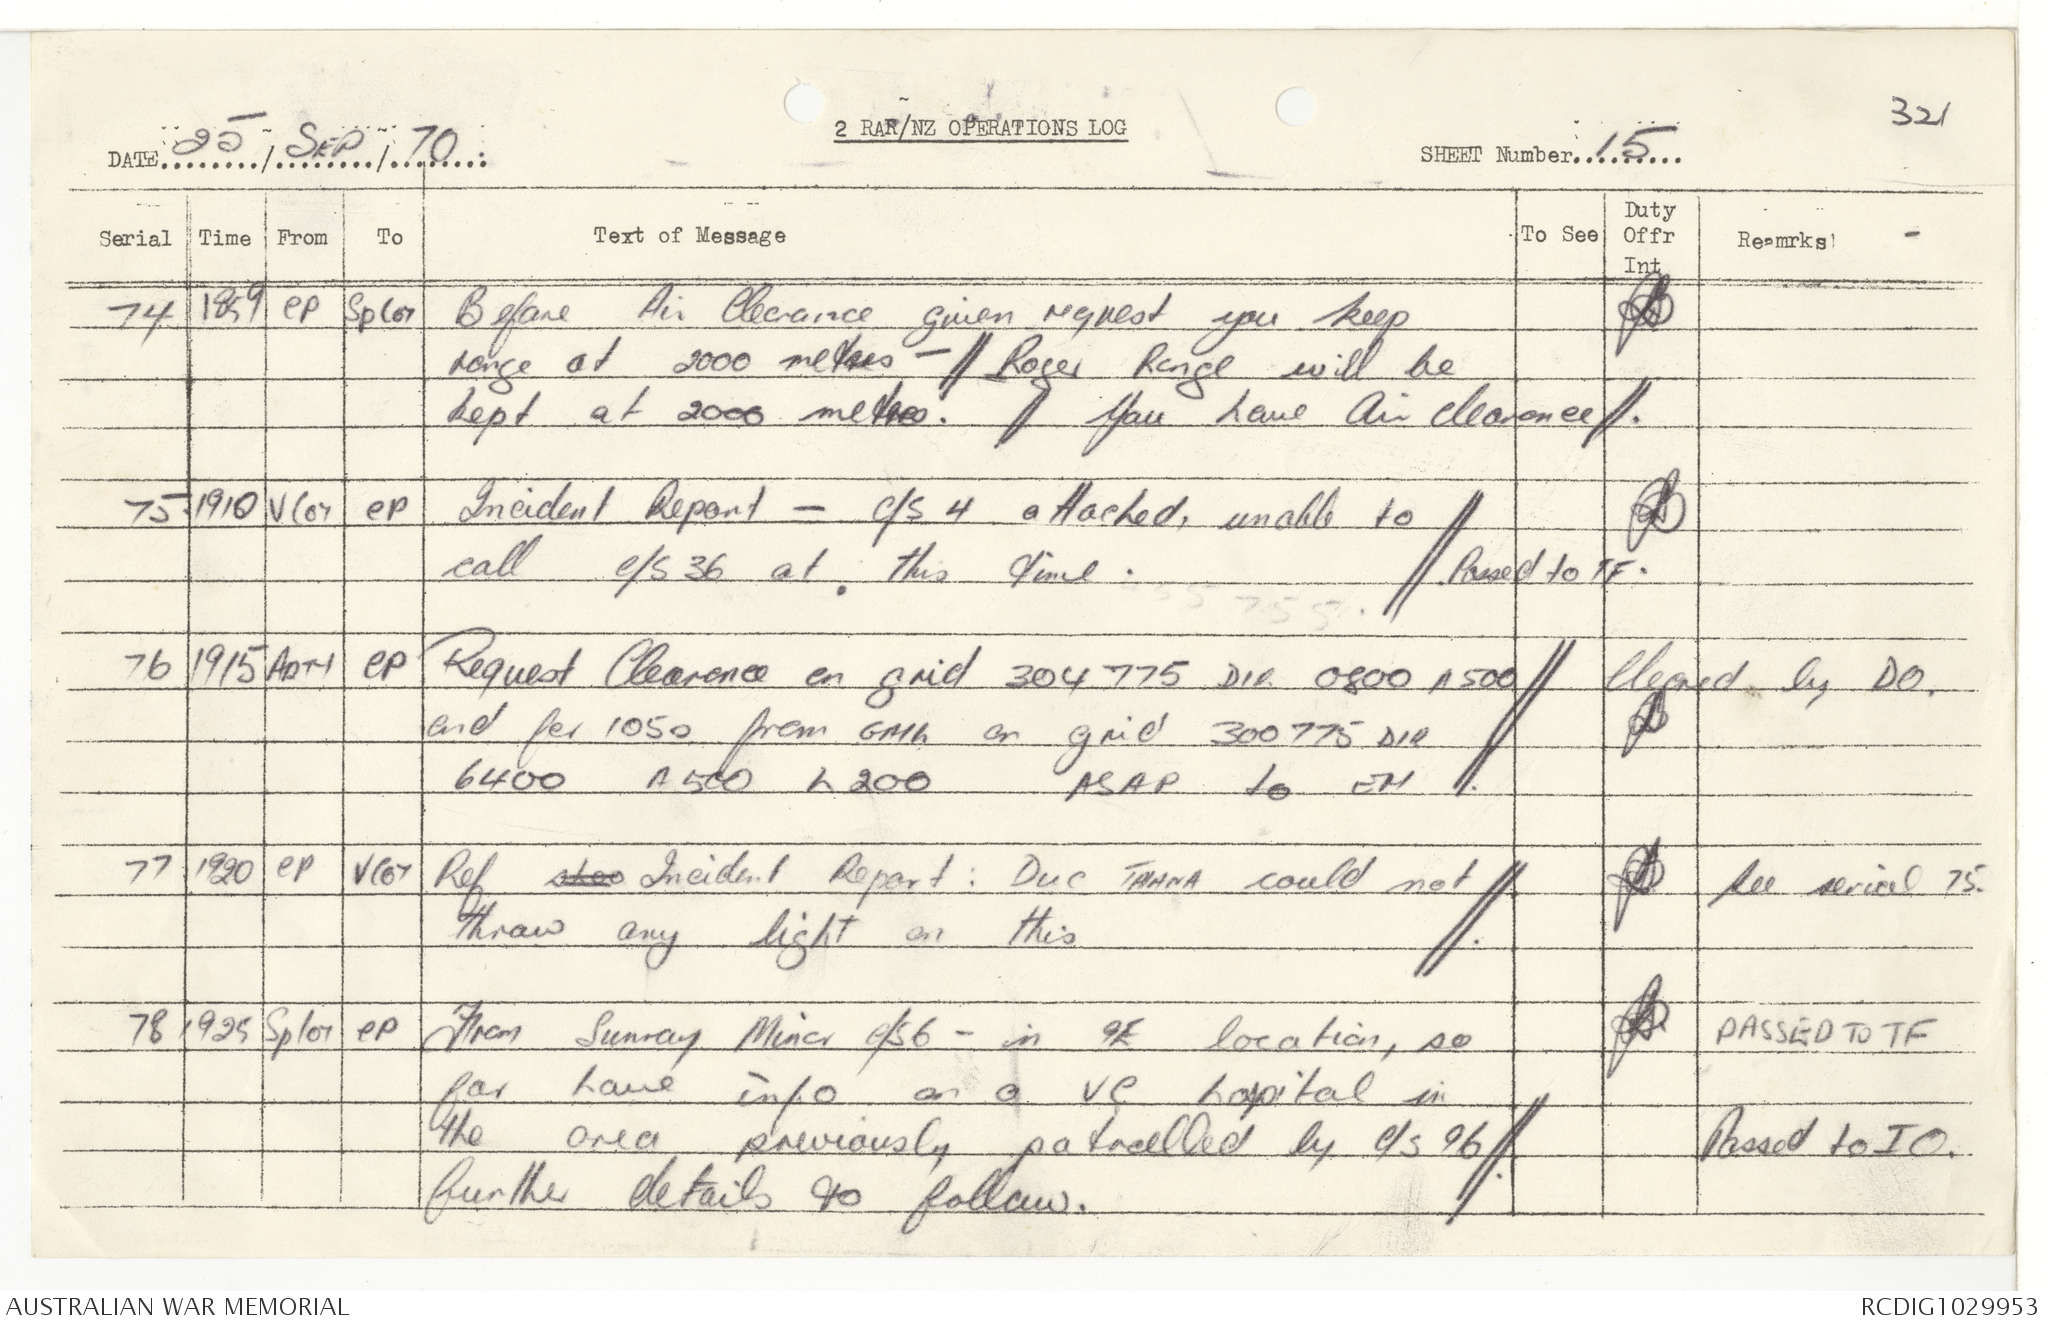 321
2 RAR/NZ OPERATIONS LOG
DATE 25/SEP/70
SHEET Number 15
Serial Time From To Text of Message To See Duty Offr Int Remrks
74 1859 CP Before Air Clearance given request you keep
range at 2000 metres - // Roger Range will be
kept at 2000 metres. // You have Air clearance //.
75 1910 CP Incident Report - C/S 4 attached, unable to
call C/S 36 at this time. // Passed to TF.
76 1915 CP Request Clearance on grid 304775 DIR 0800 A500 // Cleared by DO.
and for 1050 from on grid 300775 DIR
6400 A500 L200 ASAP to EM //.
77 1920 CP Ref Incident Report: Duc THANH could not // See serial 75.
throw any light on this //.
78 1925 CP From Sunray Minor C/S 6 - in location, so PASSED TO TF
far have info on a VC hospital in
the area previously patrolled by C/S 96 //. Passed to IO.
further details to follow.
AUSTRALIAN WAR MEMORIAL
RCDIG1029953